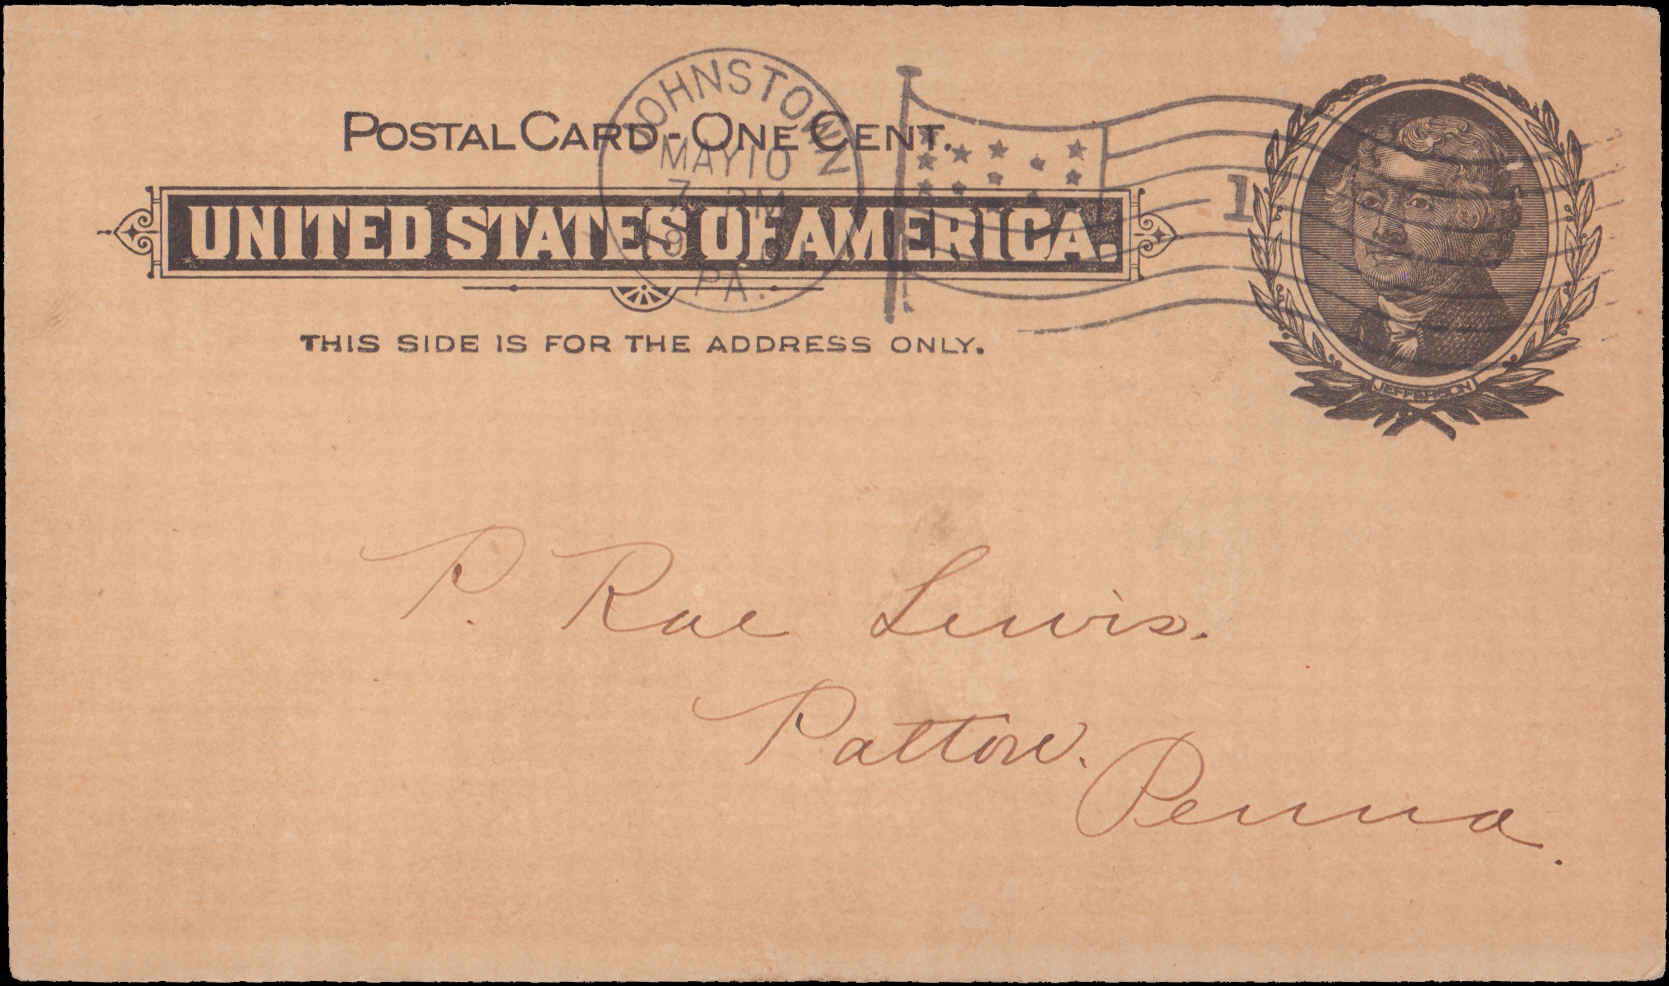 POSTAL CARD - ONE CENT.
UNITED STATES OF AMERICA.
THIS SIDE IS FOR THE ADDRESS ONLY.
JOHNSTOWN
MAY 10
7 PM
PA.
1
JEFFERSON
P. Rae Lewis.
Patton.
Penna.